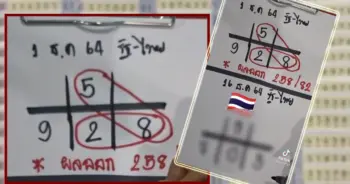 1 ธ.ค 64 รัฐ-ไทย
5
9 2 8
* ผลออก 258
1 ธ.ค 64 รัฐ-ไทย
5
9 2 8
* ผลออก 258/82
16 ธ.ค 64 รัฐ-ไทย